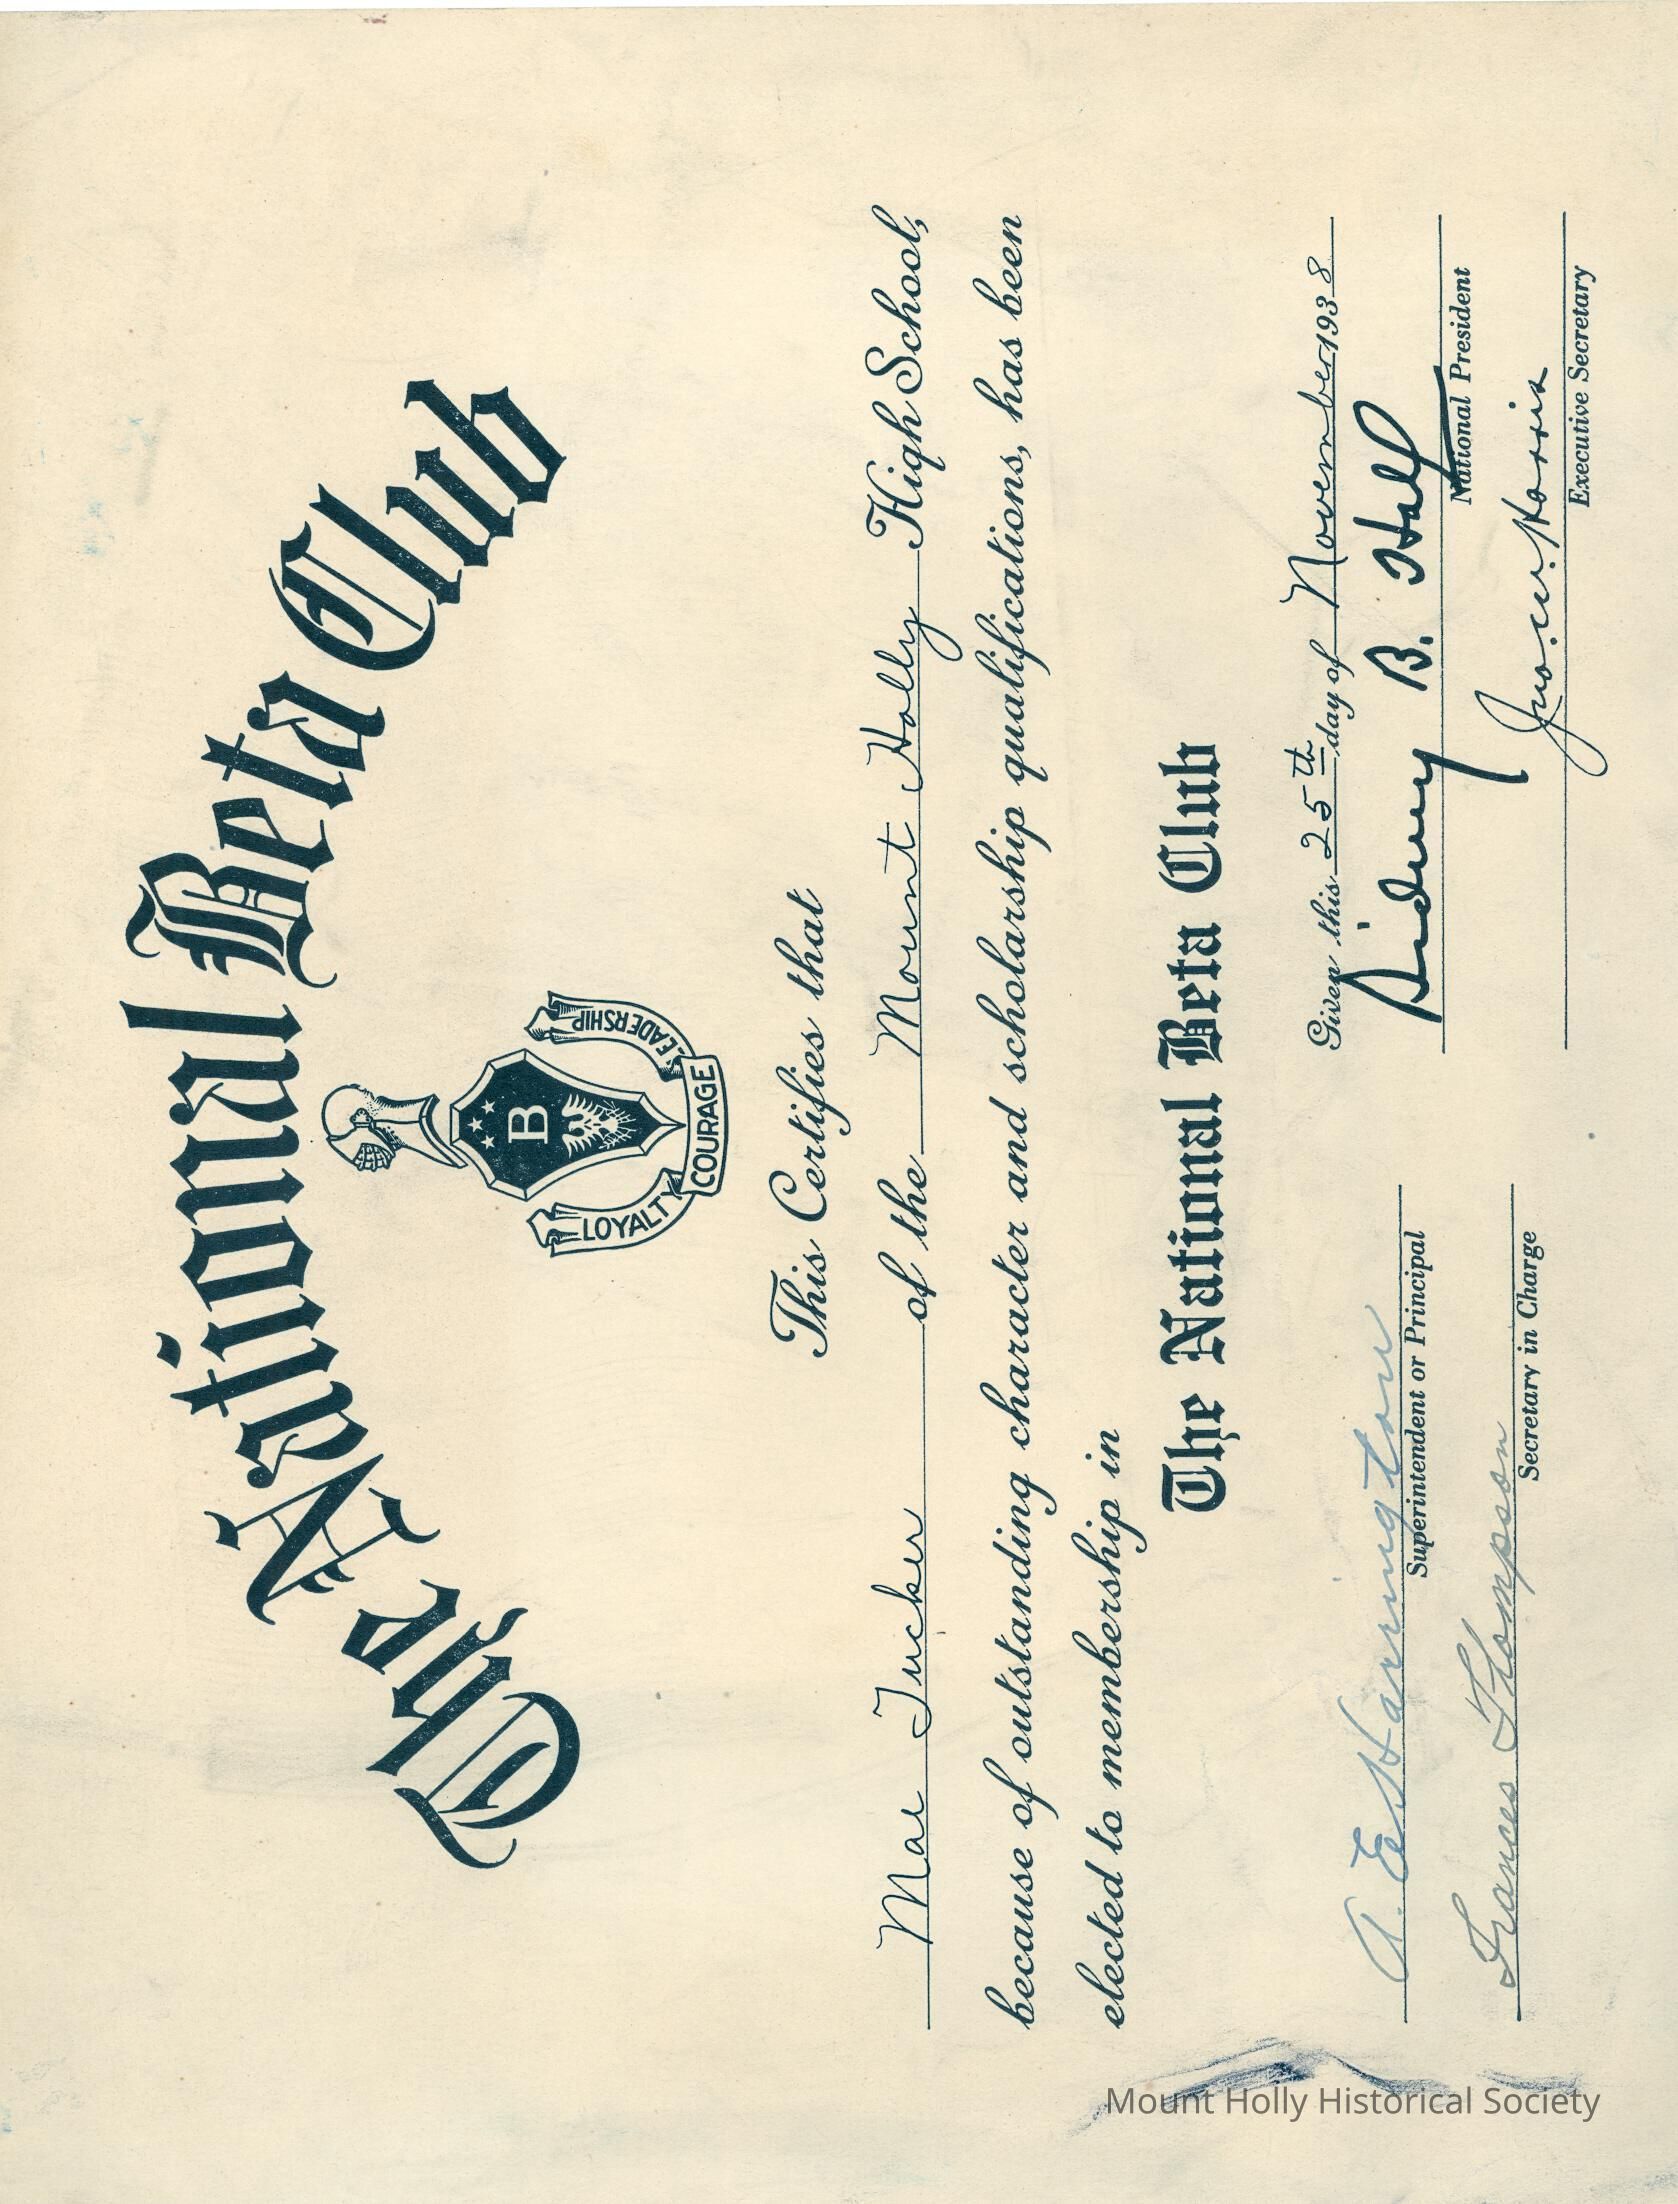 The National Beta Club
B
LOYALTY COURAGE LEADERSHIP
This Certifies that
Mae Tucker of the Mount Holly High School,
because of outstanding character and scholarship qualifications, has been
elected to membership in
The National Beta Club
Given this 25th day of November 1938
A. E. Harrington
Superintendent or Principal
Sidney B. Hall
National President
Frances Thompson
Secretary in Charge
Jno. W. Harris
Executive Secretary
Mount Holly Historical Society